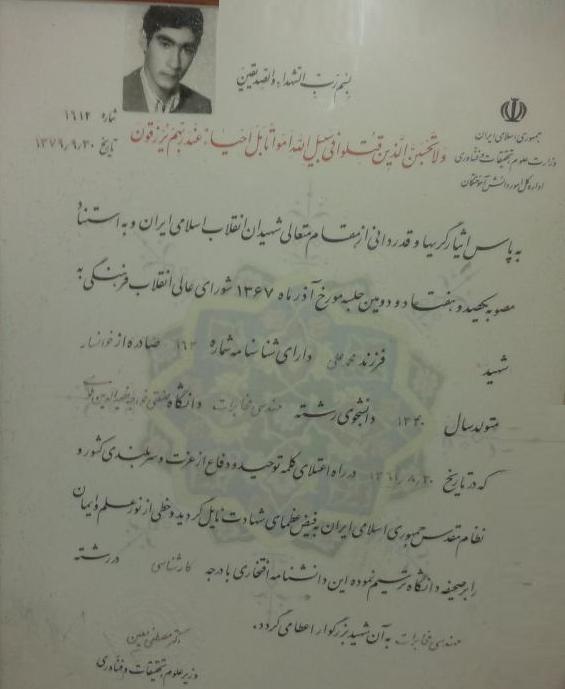 بسم رب الشهداء و الصدیقین
شماره ۱۶۱۲
تاریخ ۱۳۷۹/۹/۳۰
جمهوری اسلامی ایران
وزارت علوم، تحقیقات و فناوری
اداره کل امور دانش آموختگان
ولا تحسبن الذین قتلوا فی سبیل الله امواتا بل احیاء عند ربهم یرزقون
به پاس ایثارگریها و قدردانی از مقام متعالی شهیدان انقلاب اسلامی ایران و به استناد
مصوبه یکصد و هفتاد و دومین جلسه مورخ آذر ماه ۱۳۶۷ شورای عالی انقلاب فرهنگی به
شهید فرزند محمدعلی دارای شناسنامه شماره ۱۶۳ صادره از خوانسار
متولد سال ۱۳۴۰ دانشجوی رشته مهندسی مخابرات دانشگاه صنعتی خواجه نصیرالدین طوسی
که در تاریخ ۱۳۶۱/۸/۲۰ در راه اعتلای کلمه توحید و دفاع از عزت و سربلندی کشور و
نظام مقدس جمهوری اسلامی ایران به فیض عظمای شهادت نایل گردید و خطی از نور علم و ایمان
را بر صحیفه دانشگاه ترسیم نموده این دانشنامه افتخاری با درجه کارشناسی در رشته
مهندسی مخابرات به آن شهید بزرگوار اعطا می گردد.
دکتر مصطفی معین
وزیر علوم، تحقیقات و فناوری